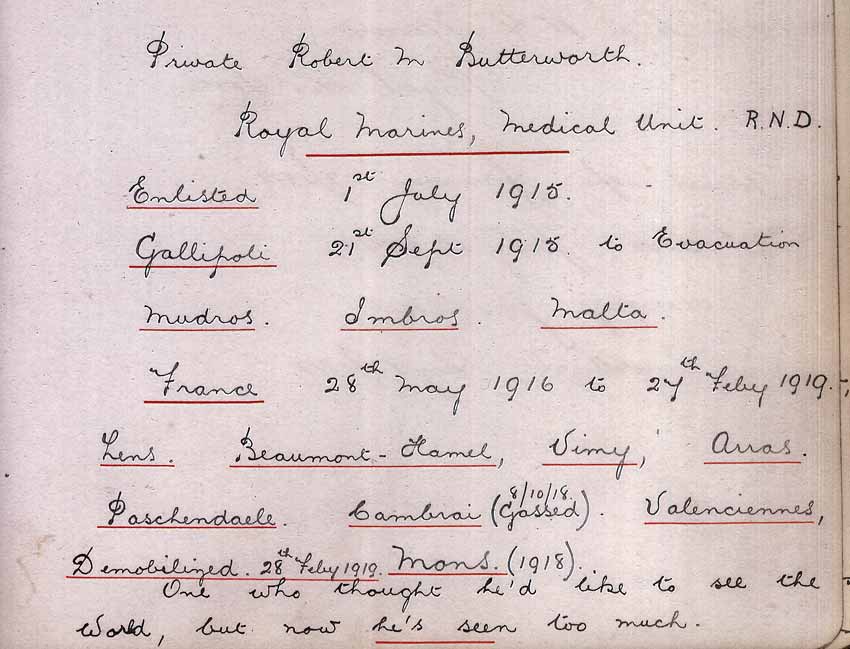 Private Robert M Butterworth.
Royal Marines, Medical Unit. R.N.D.
Enlisted 1st July 1915.
Gallipoli 21st Sept 1915. to Evacuation
Mudros. Imbros. Malta.
France 28th May 1916 to 27th Feby 1919.
Lens. Beaumont-Hamel, Vimy, Arras.
Paschendaele. Cambrai (8/10/18. Gassed). Valenciennes,
Demobilized. 28th Feby 1919. Mons. (1918).
One who thought he'd like to see the
World, but now he's seen too much.